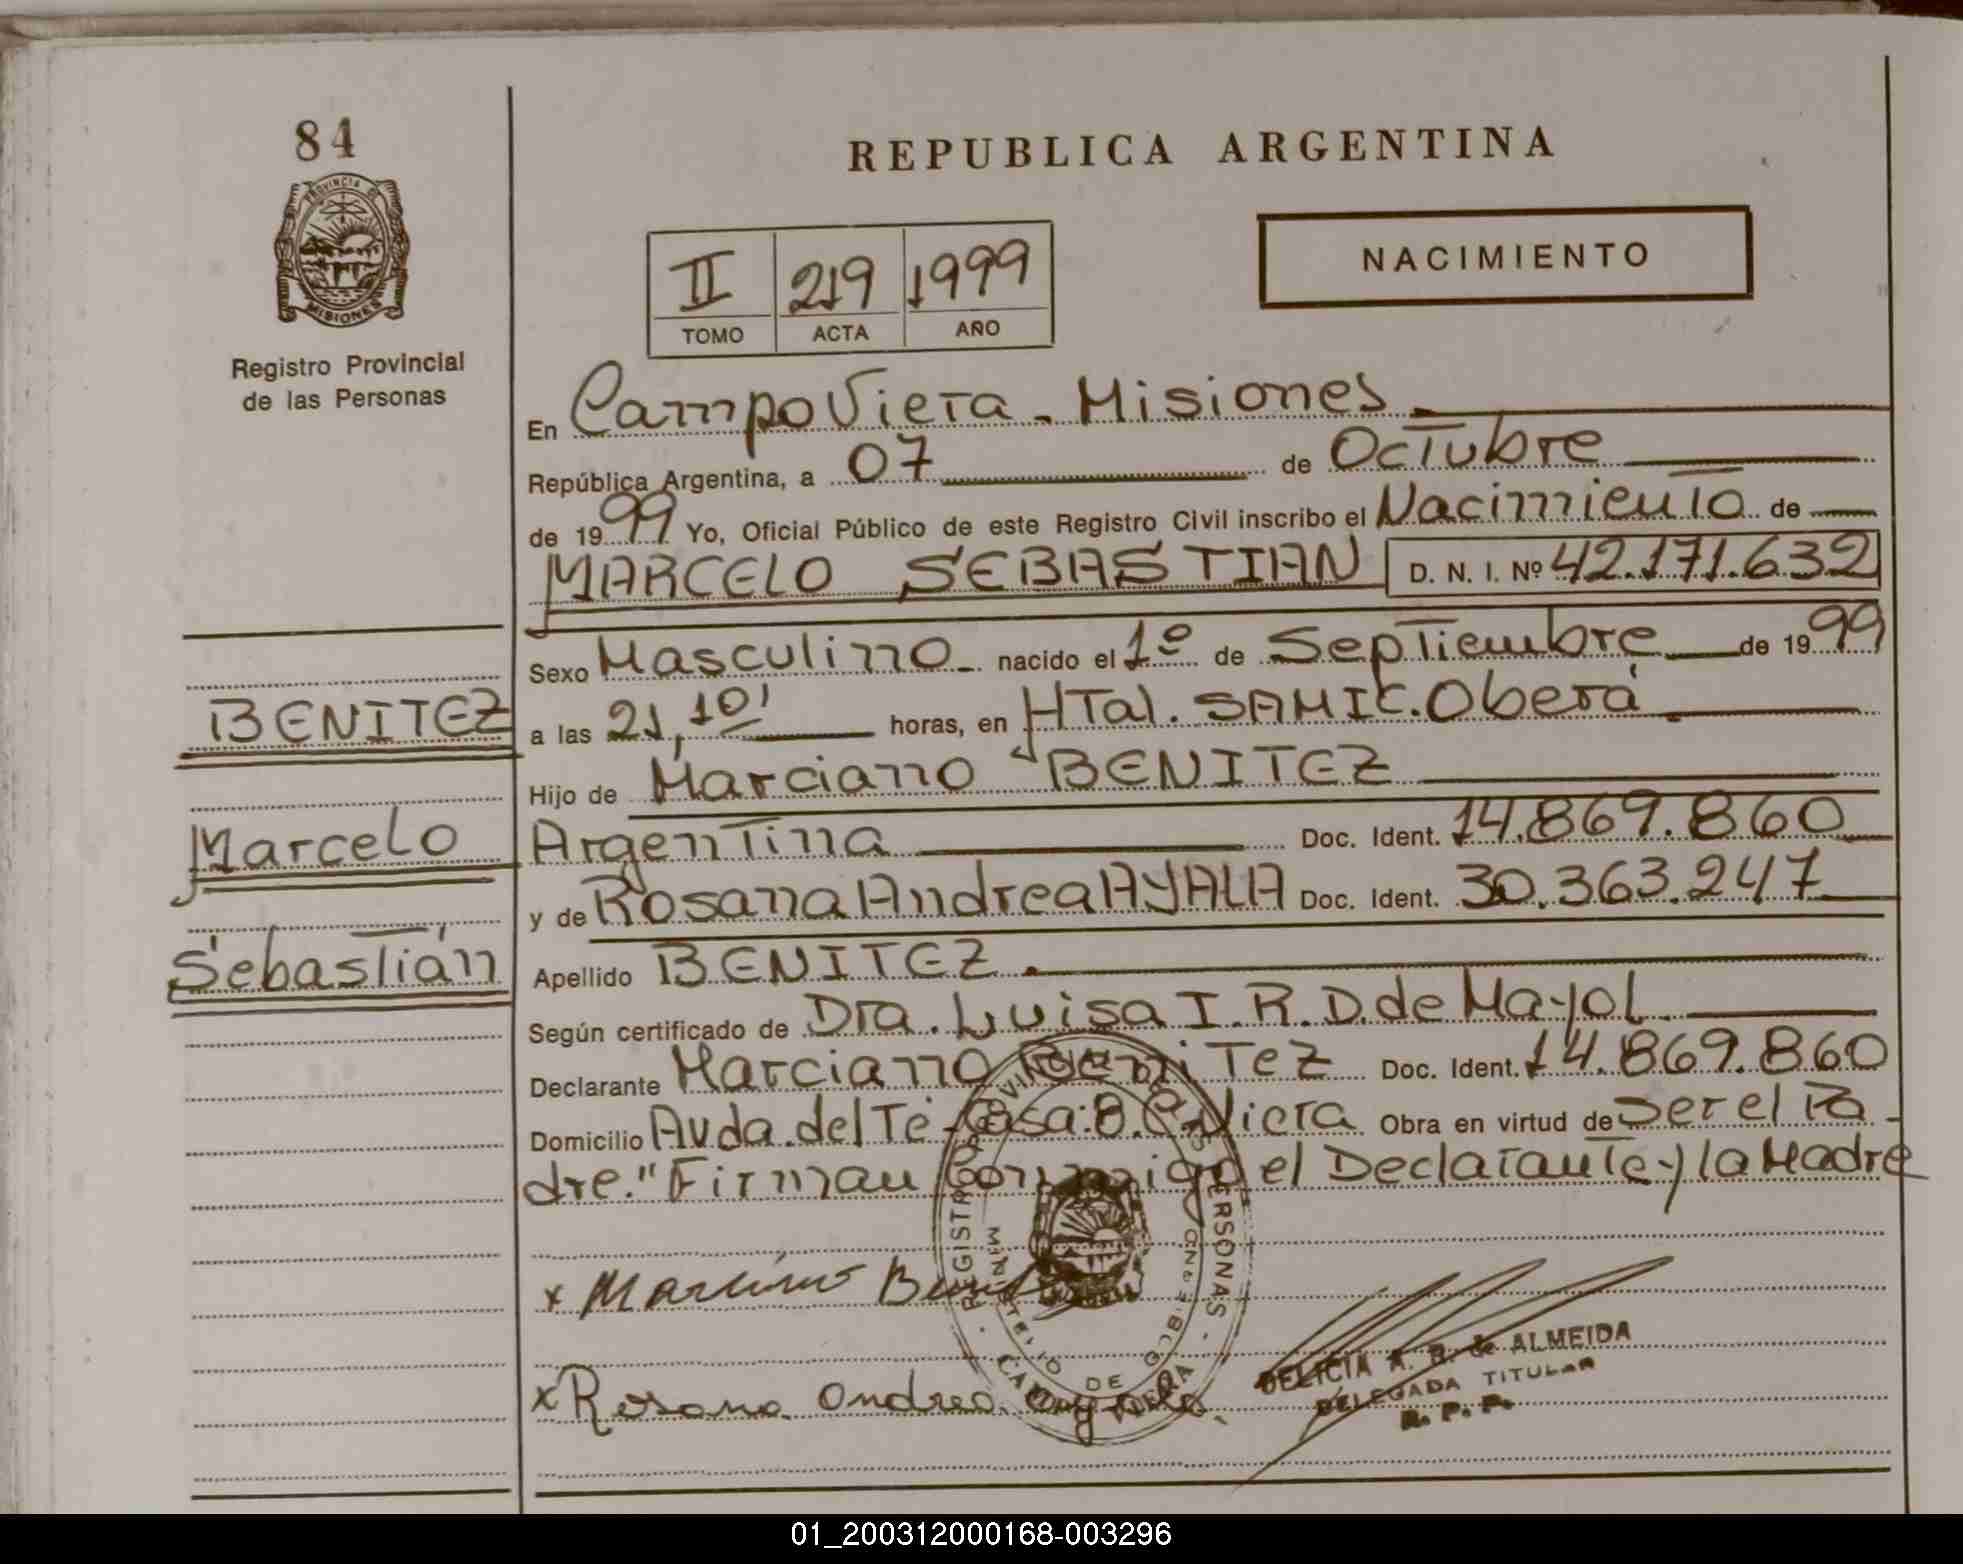 84
PROVINCIA DE
MISIONES
Registro Provincial
de las Personas
REPUBLICA ARGENTINA
II 219 1999
TOMO ACTA AÑO
NACIMIENTO
En Campo Viera - Misiones
República Argentina, a 07 de Octubre
de 1999 Yo, Oficial Público de este Registro Civil inscribo el Nacimiento de
MARCELO SEBASTIAN D. N. I. Nº 42.171.632
Sexo Masculino nacido el 1º de Septiembre de 1999
BENITEZ
a las 21,10' horas, en HTal. SAMIC. Oberá
Hijo de Marciano BENITEZ
Marcelo
Argentina Doc. Ident. 14.869.860
y de Rosana Andrea AYALA Doc. Ident. 30.363.247
Sebastián
Apellido BENITEZ.
Según certificado de Dra. Luisa I. R. D. de Mayol
Declarante Marciano BeniTez Doc. Ident. 14.869.860
Domicilio Avda. del Té - Casa: 8. C. Viera Obra en virtud de Ser el Pa-
dre." Firman Conmigo el Declarante y la Madre
x Marciano
x Rosana Andrea Ayala
DELICIA A. R. de ALMEIDA
DELEGADA TITULAR
R. P. P.
01_200312000168-003296